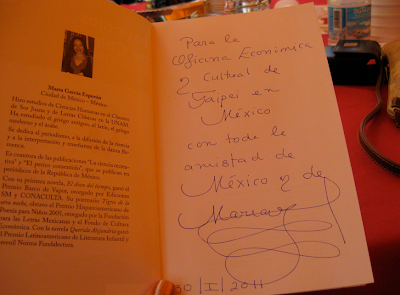 María García Esperón
Ciudad de México - México.
Hizo estudios de Ciencias Humanas en el Claustro
de Sor Juana y de Letras Clásicas en la UNAM.
Ha estudiado el griego antiguo, el latín, el griego
moderno y el árabe.
Se dedica al periodismo, a la difusión de la ciencia
y a la interpretación y enseñanza de la danza
Es coautora de las publicaciones "La ciencia
y "El perro consentido", que se publican en
periódicos de la República de México.
Con su primera novela, El disco del tiempo, ganó el
Premio Barco de Vapor, otorgado por Ediciones
SM y CONACULTA. Su poemario Tigres de la
noche, obtuvo el Premio Hispanoamericano de
Poesía para Niños 2005, otorgado por la Fundación
para las Letras Mexicanas y el Fondo de Cultura
Económica. Con la novela Querida Alejandría ganó
el Premio Latinoamericano de Literatura Infantil y
Juvenil Norma Fundalectura.
Para la
Oficina Económica
y Cultural de
Taipei en
México
con toda la
amistad de
México y de
María
30/I/2011